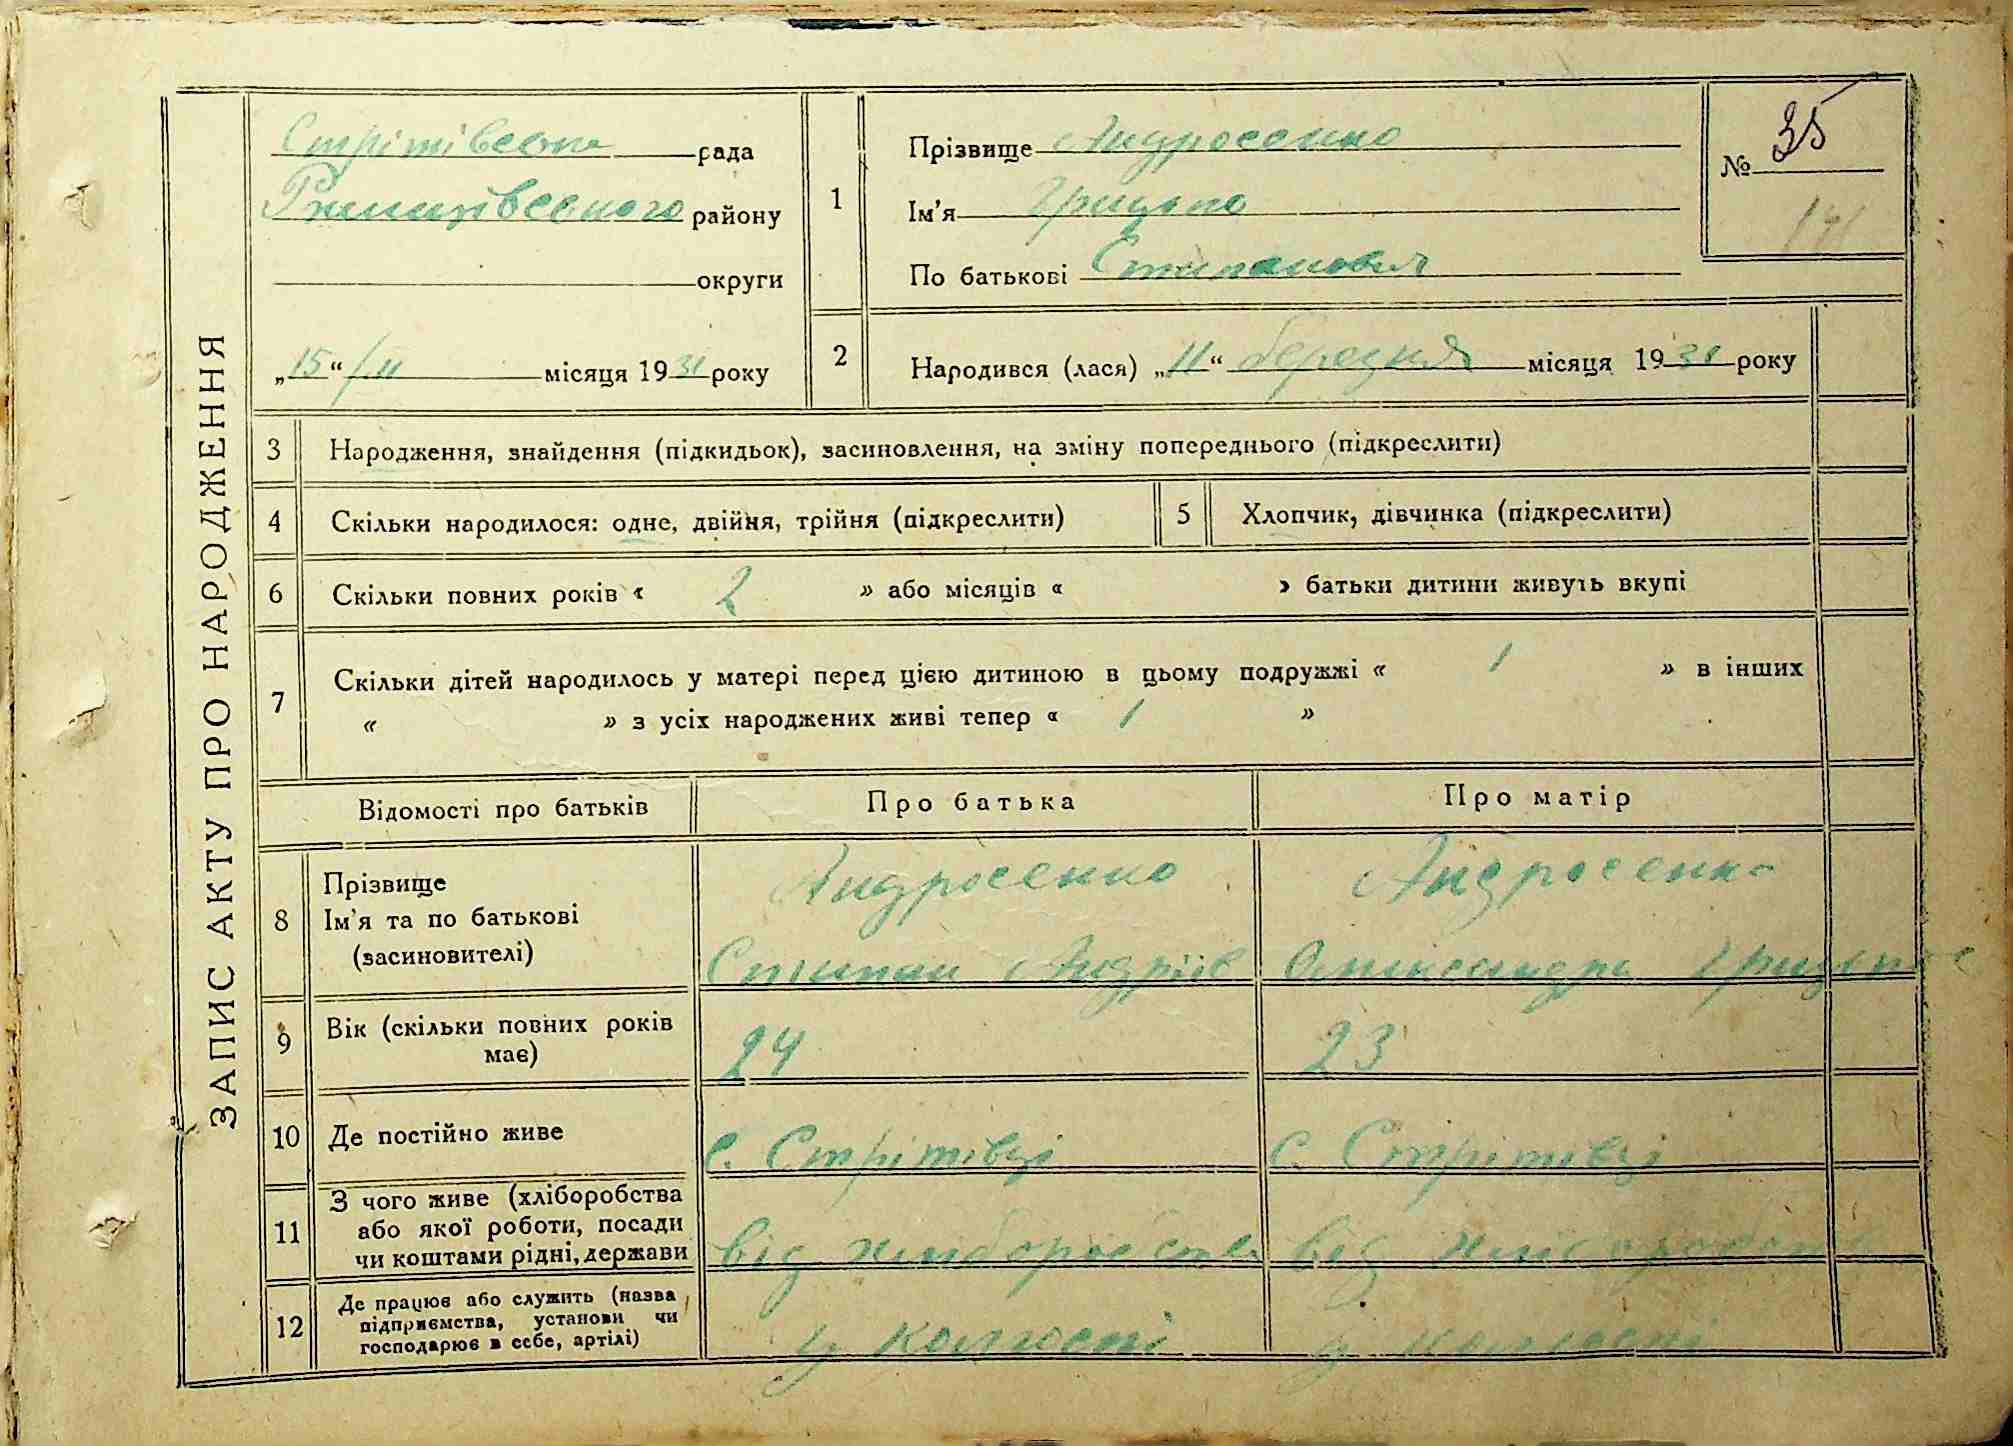 ЗАПИС АКТУ ПРО НАРОДЖЕННЯ
Стрітівська рада
Ржищівського району
округи
„15“ /III місяця 1931 року
1
Прізвище Андросенко
Ім'я Грицько
По батькові Степанович
№ 35
2
Народився (лася) „11“ березня місяця 1931 року
3 Народження, знайдення (підкидьок), засиновлення, на зміну попереднього (підкреслити)
4 Скільки народилося: одне, двійня, трійня (підкреслити) 5 Хлопчик, дівчинка (підкреслити)
6 Скільки повних років « 2 » або місяців « » батьки дитини живуть вкупі
7 Скільки дітей народилось у матері перед цією дитиною в цьому подружжі « 1 » в інших
« » з усіх народжених живі тепер « 1 »
Відомості про батьків Про батька Про матір
8 Прізвище
Ім'я та по батькові
(засиновителі)
Андросенко
Степан Андріїв
Андросенко
Олександра
9 Вік (скільки повних років
має)
24 23
10 Де постійно живе с. Стрітівці с. Стрітівці
11 З чого живе (хліборобства
або якої роботи, посади
чи коштами рідні, держави
від хліборобства від хліборобства
12 Де працює або служить (назва
підприємства, установи чи
господарює в себе, артілі)
у колгоспі у колгоспі